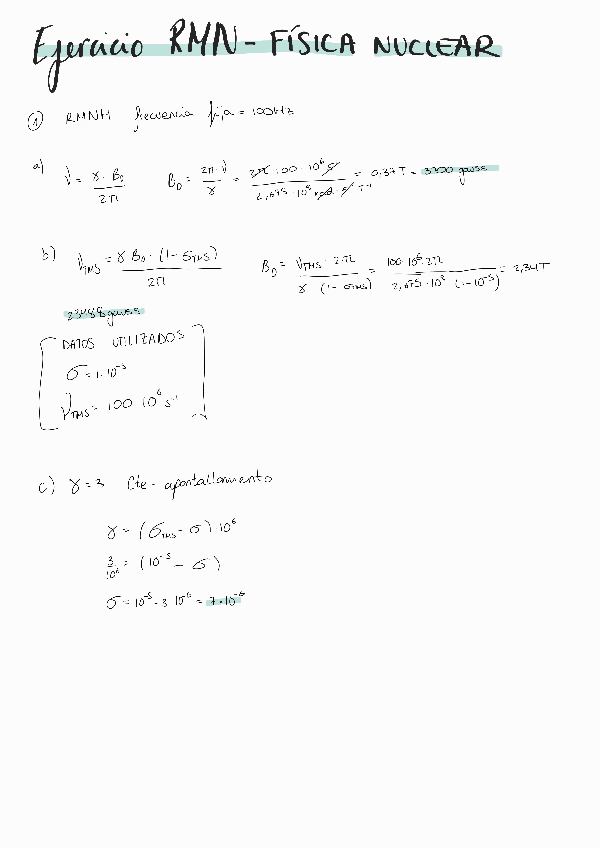 Ejercicio RMN - FÍSICA NUCLEAR
① RMNH frecuencia fija = 100 Hz
a) ν = γ · B₀ / 2π   B₀ = 2π · ν / γ = 2π · 100 · 10⁶ s⁻¹ / 2,675 · 10⁸ rad · s⁻¹ T⁻¹ = 0,37 T = 3700 gauss
b) ν_TMS = γ B₀ · (1 - σ_TMS) / 2π   B₀ = ν_TMS · 2π / γ (1 - σ_TMS) = 100 · 10⁶ · 2π / 2,675 · 10⁸ (1 - 10⁻⁵) = 2,34 T
23488 gauss
DATOS UTILIZADOS
σ = 1 · 10⁻⁵
ν_TMS = 100 · 10⁶ s⁻¹
c) γ = 3 Cte. apantallamiento
γ = (σ_TMS - σ) · 10⁶
3 / 10⁶ = (10⁻⁵ - σ)
σ = 10⁻⁵ - 3 · 10⁻⁶ = 7 · 10⁻⁶